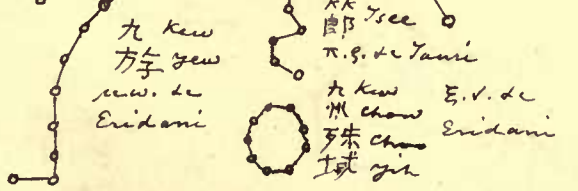 九 Kew
斿 yew
μ.ω. &c
Eridani
郎 Tsee
π.ξ. &c Tauri
九 Kew
州 Chow
殊 Choo
域 yih
ξ.ν. &c
Eridani